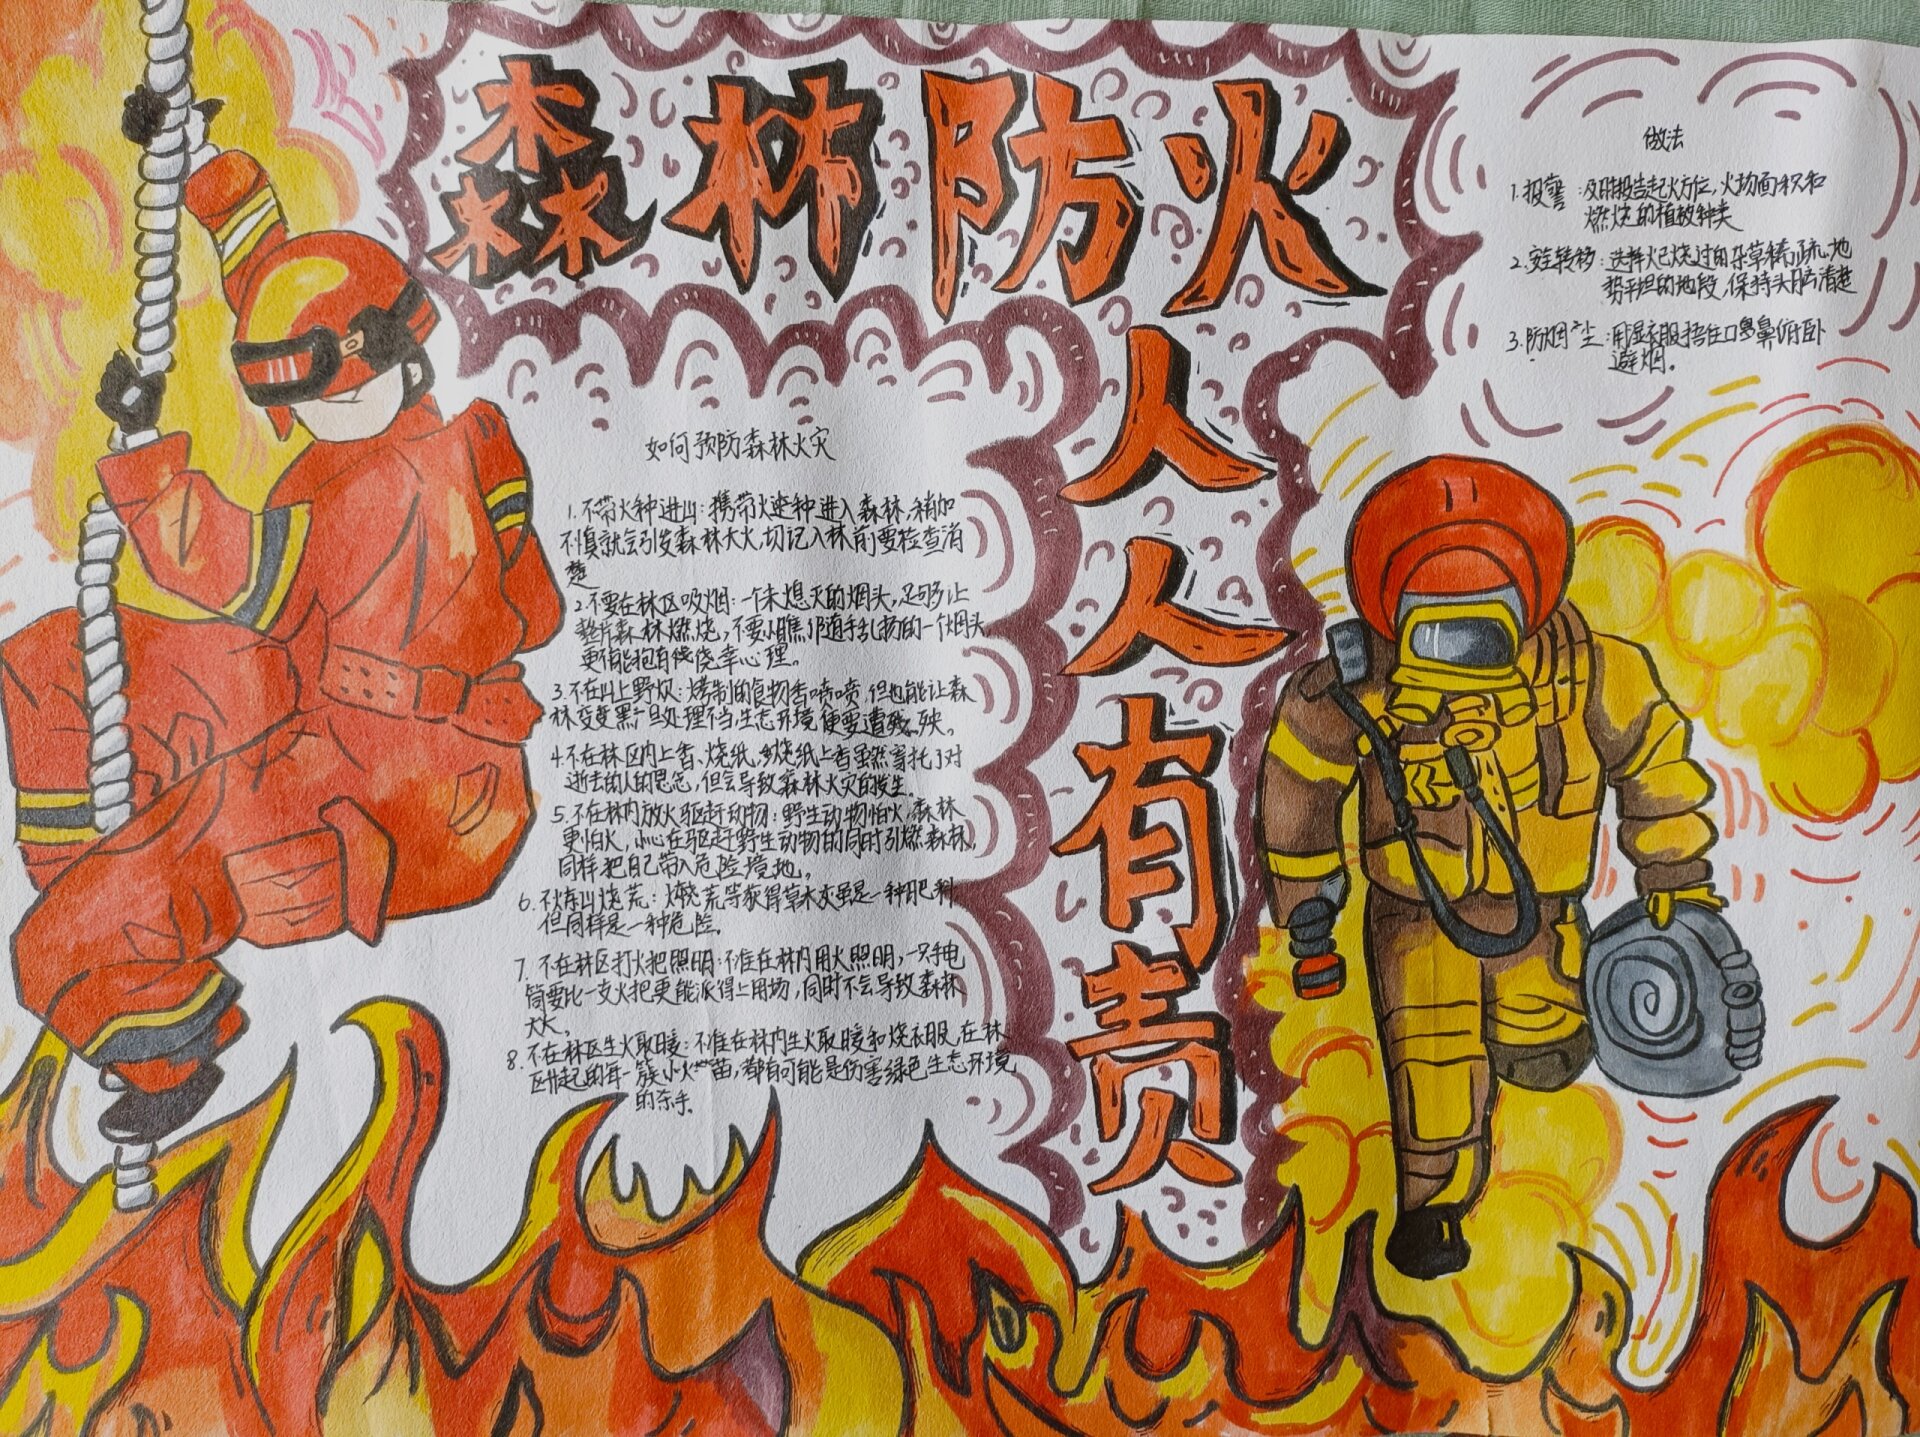 森林防火
人人有责
如何预防森林火灾
1.不带火种进山：携带火种进入森林，稍加
不慎就会引发森林大火，切记入林前要检查清
楚
2.不要在林区吸烟：一个未熄灭的烟头，足够让
整片森林燃烧，不要小瞧了随手乱扔的一个烟头，
更不能抱有侥幸心理。
3.不在山上野炊：烤制的食物香喷喷，但也能让森
林变黑，一旦处理不当，生态环境便要遭殃。
4.不在林区内上香、烧纸，烧纸上香虽然寄托了对
逝去的人的思念，但会导致森林火灾的发生。
5.不在林内放火驱赶动物：野生动物怕火，森林
更怕火，小心在驱赶野生动物的同时引燃森林，
同样把自己带入危险境地。
6.不炼山烧荒：烧荒等获得草木灰虽是一种肥料
但同样是一种危险。
7.不在林区打火把照明：不准在林内用火照明，一只手电
筒要比一支火把更能派得上用场，同时不会导致森林
大火。
8.不在林区生火取暖：不准在林内生火取暖和烧衣服，在林
区升起的每一簇小火苗，都有可能是伤害绿色生态环境
的杀手。
做法
1.报警：及时报告起火方位，火场面积和
燃烧的植被种类
2.安全转移：选择火已烧过的杂草稀疏，地
势平坦的地段，保持头脑清楚
3.防烟尘：用湿衣服捂住口鼻俯卧
避烟。